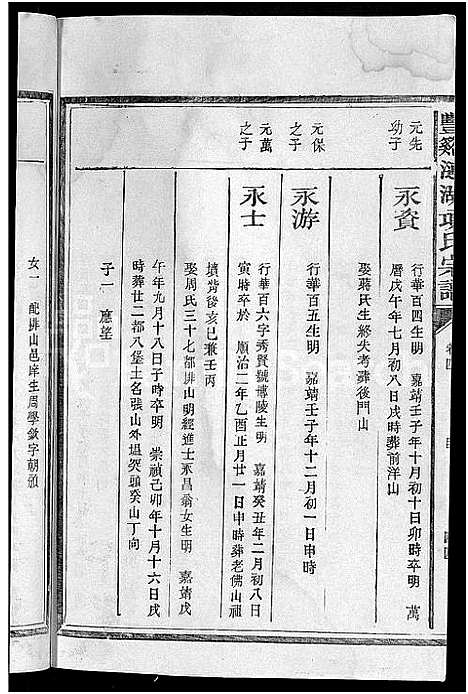 豐谿漣湖項氏宗譜
卷四
元先
幼子
永資
行華百四生明 嘉靖壬子年十月初十日卯時卒明 萬
曆戊午年七月初八日戌時葬前洋山
娶蔣氏生終失考葬後門山
元保
之子
永游
行華百五生明 嘉靖壬子年十二月初一日申時
元萬
之子
永士
行華百六字秀賢號博陵生明 嘉靖癸丑年二月初八日
寅時卒於 順治二年乙酉正月廿一日申時葬老佛山祖
墳背後亥巳兼壬丙
娶周氏三十七都排山明經進士永昌翁女生明 嘉靖戊
午年九月十八日子時卒明 崇禎己卯年十月十六日戌
時葬廿二都八堡土名張山外塭突頭癸山丁向
子一 應望
女一 配排山邑庠生周學欽字朝顯